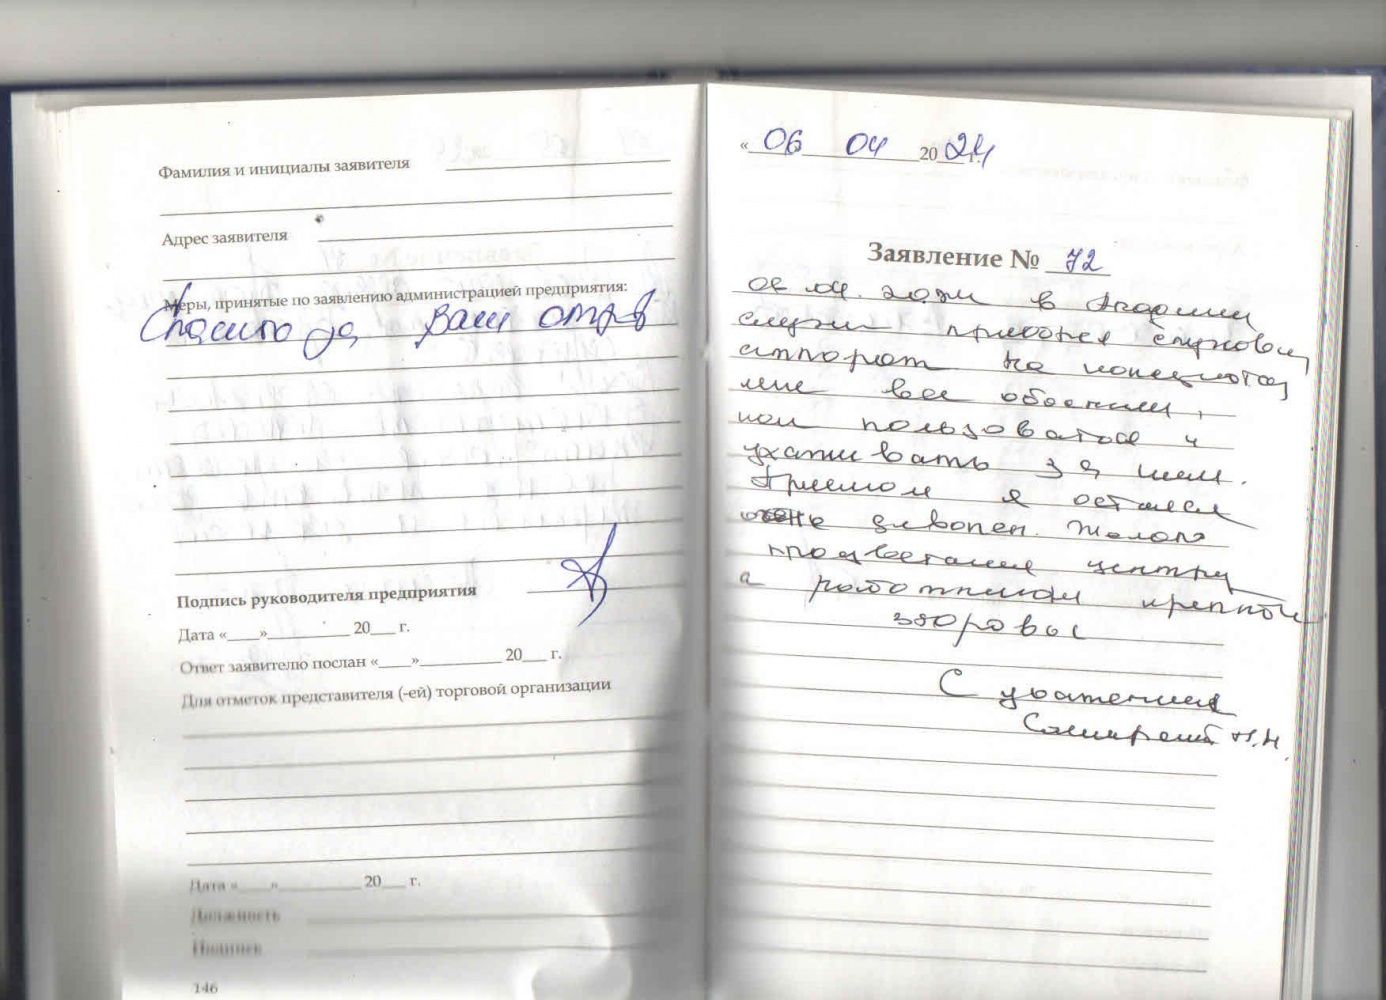 Фамилия и инициалы заявителя
Адрес заявителя
Меры, принятые по заявлению администрацией предприятия:
Спасибо за Ваш отзыв
Подпись руководителя предприятия
Дата «____»__________ 20___ г.
Ответ заявителю послан «____»__________ 20___ г.
Для отметок представителя (-ей) торговой организации
Дата «____»__________ 20___ г.
Должность
Подпись
146
« 06 04 2024 г.
Заявление № 72
06.04. 2024 в Академии
слуха приобрел слуховой
аппарат на консультации
мне все обяснили,
как пользоватся и
ухаживать за ним.
Приемом я остался
очень доволен. Желаю
процветания центру
а работникам крепкого
здоровья
С уважением
Н.Н.